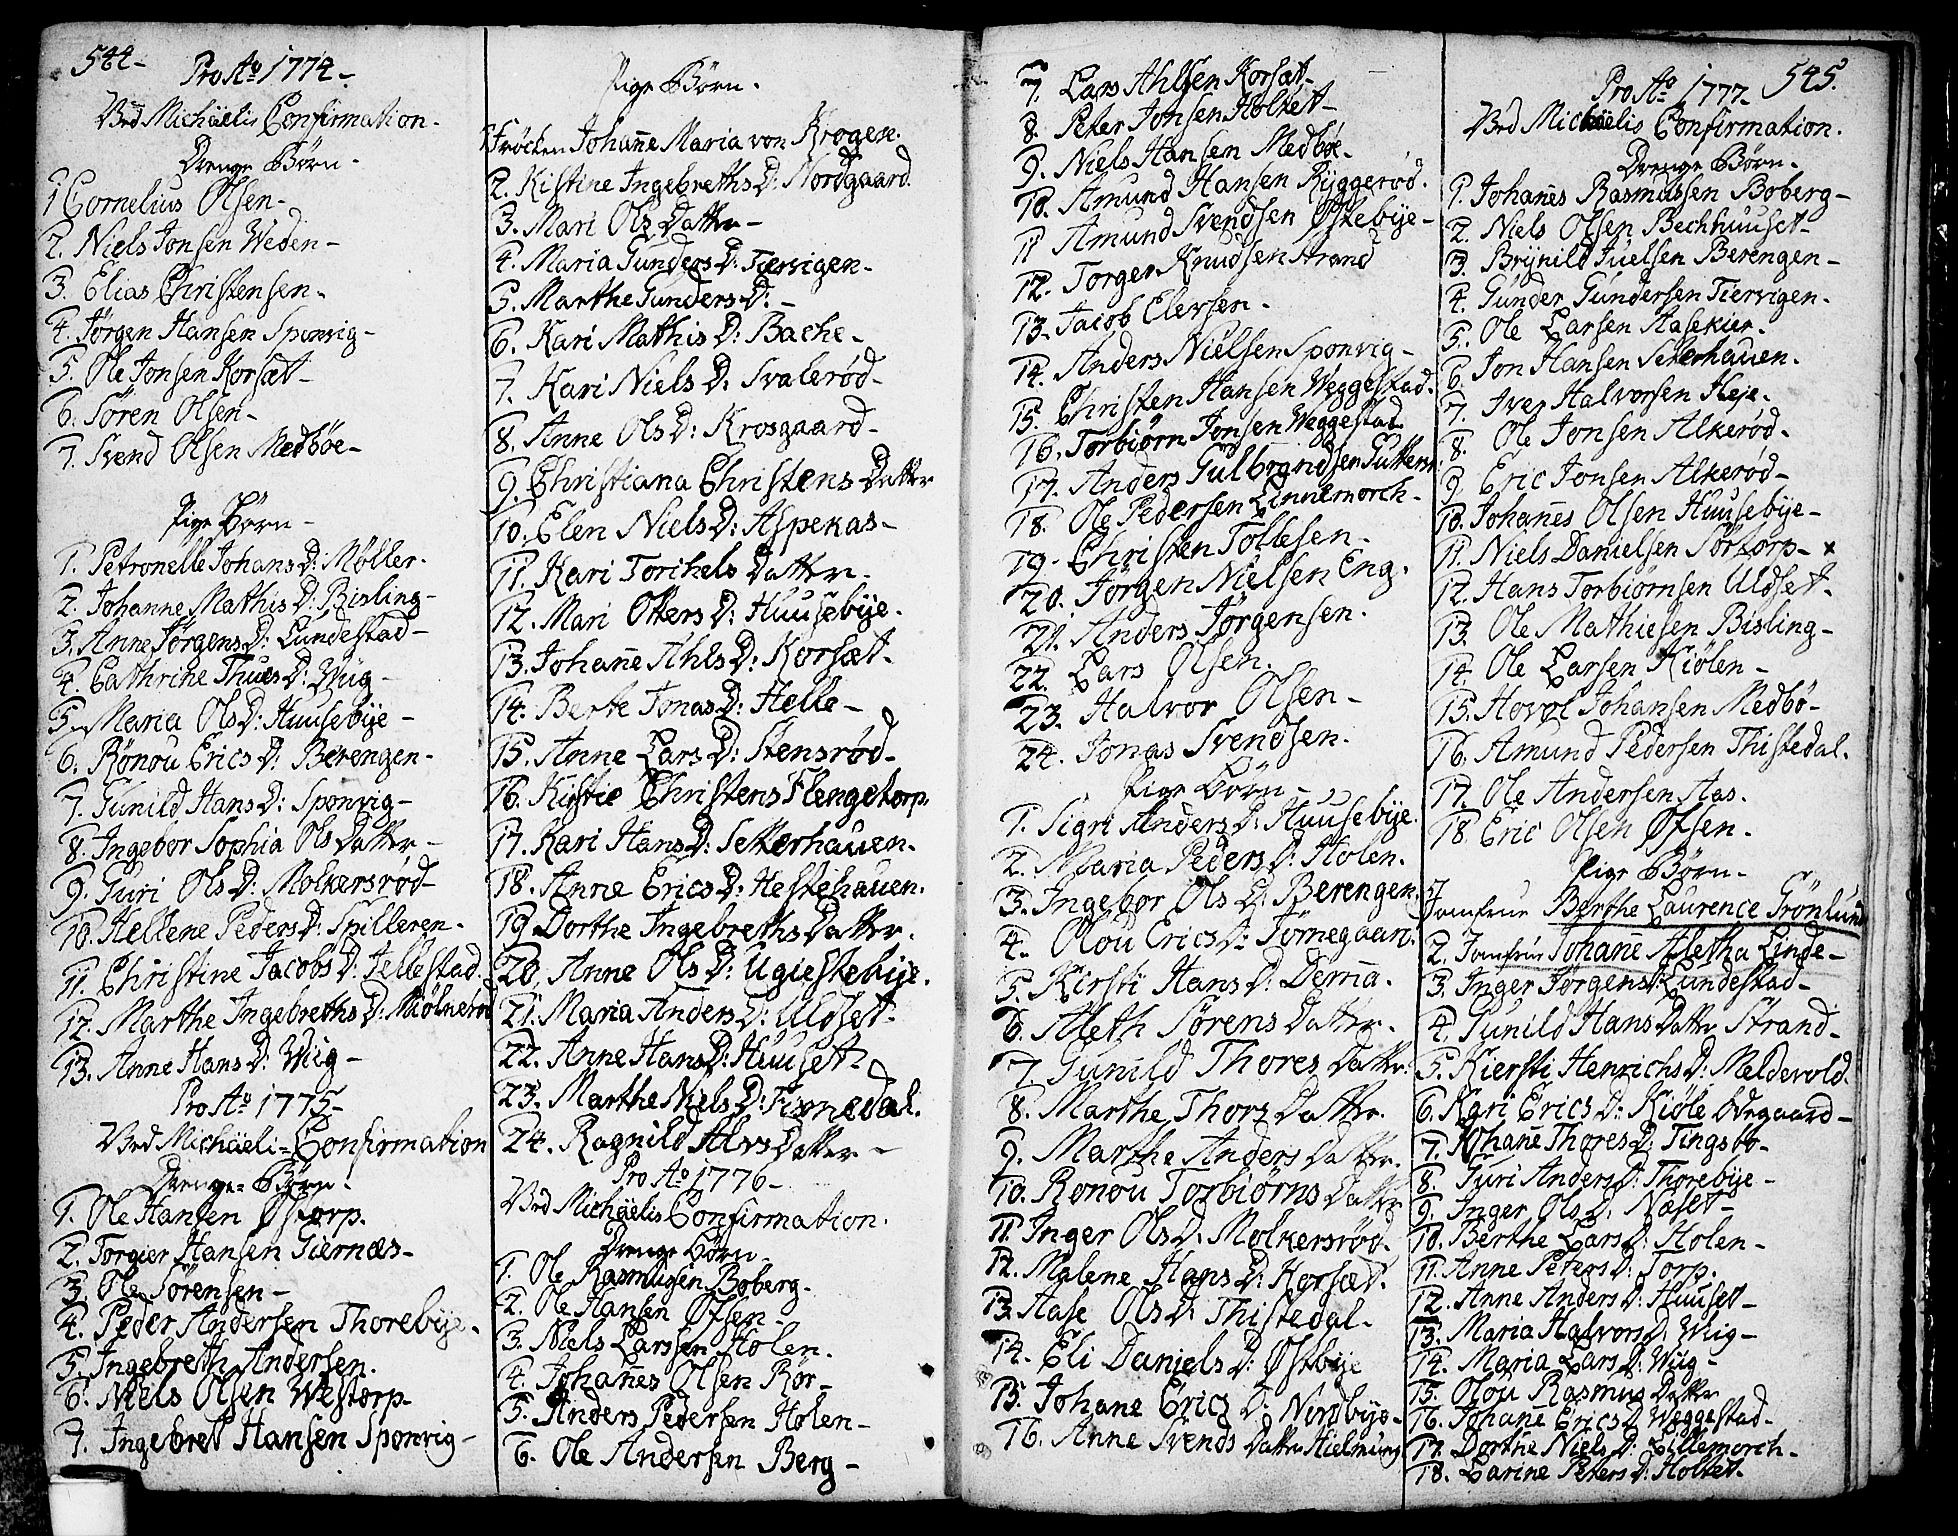 544.
Pro Aō 1774.
Ved Michäelis Confirmation.
Drenge Børn.
1 Cornelius Olsen
2. Niels Jonsen Weden
3. Elias Christensen.
4. Jørgen Hansen Sponvig
5. Ole Jonsen Korsæt
6. Søren Olsen
7. Svend Olsen Medbøe
Pige Børn
1. Petronelle Johans D: Møller.
2. Johanne Mathis D: Bisling
3. Anne Jørgens D: Lundestad
4. Cathrine Thues D: Wiig
5. Maria Ols D: Huusebÿe
6. Rønou Erics D: Berengen
7. Gunild Hans D: Sponvig
8. Ingebor Sophia Ols Datter
9. Guri Ols D: Molkersrød
10. Hellene Peders D: Spilleren.
11. Christine Jacobs D: Jellestad
12. Marthe Ingebreths D: Mølnerød
13. Anne Hans D: Wiig
Pro Aō 1775
Ved Michäeli Confirmation
Drenge Børn.
1. Ole Hansen Østorp.
2. Torgier Hansen Giernæs
3. Ole Sørensen
4. Peder Andersen Thorebÿe.
5. Ingebreth Andersen.
6. Niels Olsen Westorp
7. Ingebret Hansen Sponvig
Pige Børn.
1 Frøcken Johañe Maria von Krogen.
2. Kistine Ingebreths D: Nordgaard.
3. Mari Ols Datter
4. Maria Gunders D: Tiervigen
5. Marthe Gunders D:
6. Kari Mathis D: Bache
7. Kari Niels D: Svalerød
8. Anne Ols D: Krosgaard
9. Christiana Christens Datter
10. Elen Niels D: Aspekas
11. Kari Torikels Datter.
12. Mari Olters D: Huusebÿe.
13. Johañe Ahls D: Korsæt
14. Berte Jonas D: Helle
15. Anne Lars D: Stensrød
16. Kirstie Christens Flengetorp
17. Kari Hans D: Setterhauen.
18. Anne Erics D: Hestehauen.
19. Dorthe Ingebreths Datter.
20. Anne Ols D: Ugiestebÿe.
21. Maria Anders D: Uldset
22. Anne Hans D: Huuset
23. Marthe Niels D: Tisnedal.
24. Ragnild Alvs Datter
Pro Aō 1776
Ved Michäelis Confirmation.
Drenge Børn
1. Ole Rasmussen Boberg.
2. Ole Hansen Øfsen
3. Niels Larssen Holen.
4. Johañes Olsen Rør
5. Anders Pedersen Holen
6. Ole Andersen Berg
7. Lars Ahlsen Korsæt
8. Peter Jonsen Holtet
9. Niels Hansen Medbøe.
10. Amund Hansen Ryggerød.
11 Amund Svendsen Østebÿe
12. Torger Knudsen Strand
13. Jacob Elersen.
14. Anders Nielsen Sponvig
15. Christen Hansen Weggestad.
16. Torbiørn Jonsen Weggestad.
17. Anders Gulbrandsen
18. Ole Pedersen Linnemorch
19. Christen Tollesen
20. Jørgen Nielsen Eng.
21. Anders Jørgensen.
22. Lars Olsen.
23. Halvor Olsen
24. Jonas Svendsen.
Pige Børn
1. Sigri Anders D: Huusebÿe.
2. Maria Peders D: Holen.
3. Ingebor Ols D: Berengen.
4. Olou Erics D: Tomegaard.
5. Kirsti Hans D: Dem̃a.
6. Aleth Sørens Datter.
7 Gunild Thores Datter.
8. Marthe Thors Datter.
9. Marthe Anders Datter.
10. Ronou Torbiørns Datter
11. Inger Ols D: Molkersrød.
12. Malene Hans D: Korsæt.
13. Aase Ols D: Thistedal.
14. Eli Daniels D: Østbÿe
15. Johane Erics D: Nordbÿe
16. Anne Svends Datter Hielmung
545.
Pro Aō 1777
Ved Michäelis Confirmation.
Drenge Børn.
1. Johañes Rasmussen Boberg
2. Niels Olsen Bechhuuset
3. Brynild Juelsen Berengen
4. Gunder Gundersen Tiervigen.
5. Ole Larsen Aasekier.
6. Jon Hansen Setterhauen.
7. Iver Halvorsen Heje.
8. Ole Jonsen Alkerød.
9. Eric Jonsen Alkerød
10. Johañes Olsen Huusebÿe
11. Niels Danielsen Sørtorp x
12. Hans Torbiørnsen Uldset.
13. Ole Mathiesen Bisling
14. Ole Larsen Kiølen
15. Hovel Johansen Medbø
16. Amund Pedersen Thistedal.
17. Ole Andersen Aas.
18. Eric Olsen Øfsen.
Pige Børn.
1 Jomfrue Berthe Laurence Grønlund
2. Jomfrue Johañe Aletha Linde
3. Inger Jørgens D: Lundestad
4. Gunild Hans Datter Strand
5. Kiersti Henrichs D: Meldevold.
6. Kari Erics D: Kiøle Ødegaard
7. Johañe Thores D: Tingsbo
8. Guri Anders D: Thorebÿe
9. Inger Ols D: Næset
10. Berthe Lars D: Holen
11. Anne Peters D: Torp.
12. Anne Anders D: Huuset
13. Maria Halvors D: Wiig
14. Maria Lars D: Wiig
15. Olou Rasmus Datter
16. Johañe Erics D: Weggestad
17. Dorthe Niels D: Lillemorch
18. Larine Peters D: Holtet